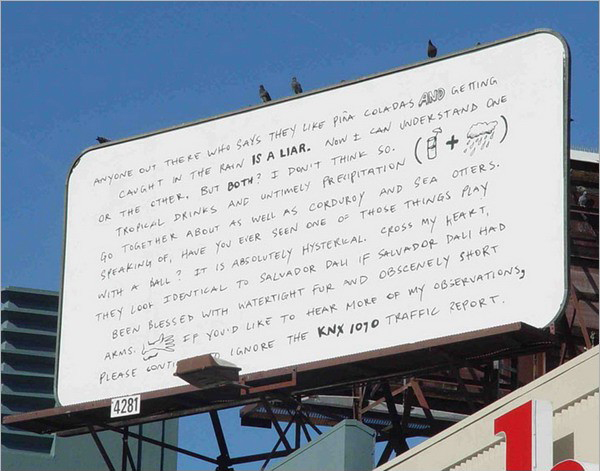 ANYONE OUT THERE WHO SAYS THEY LIKE PIÑA COLADAS AND GETTING
CAUGHT IN THE RAIN IS A LIAR. NOW I CAN UNDERSTAND ONE
OR THE OTHER. BUT BOTH? I DON'T THINK SO. ( + )
TROPICAL DRINKS AND UNTIMELY PRECIPITATION
GO TOGETHER ABOUT AS WELL AS CORDUROY AND SEA OTTERS.
SPEAKING OF, HAVE YOU EVER SEEN ONE OF THOSE THINGS PLAY
WITH A BALL? IT IS ABSOLUTELY HYSTERICAL. CROSS MY HEART,
THEY LOOK IDENTICAL TO SALVADOR DALI IF SALVADOR DALI HAD
BEEN BLESSED WITH WATERTIGHT FUR AND OBSCENELY SHORT
ARMS. IF YOU'D LIKE TO HEAR MORE OF MY OBSERVATIONS,
PLEASE TO IGNORE THE KNX 1070 TRAFFIC REPORT.
4281